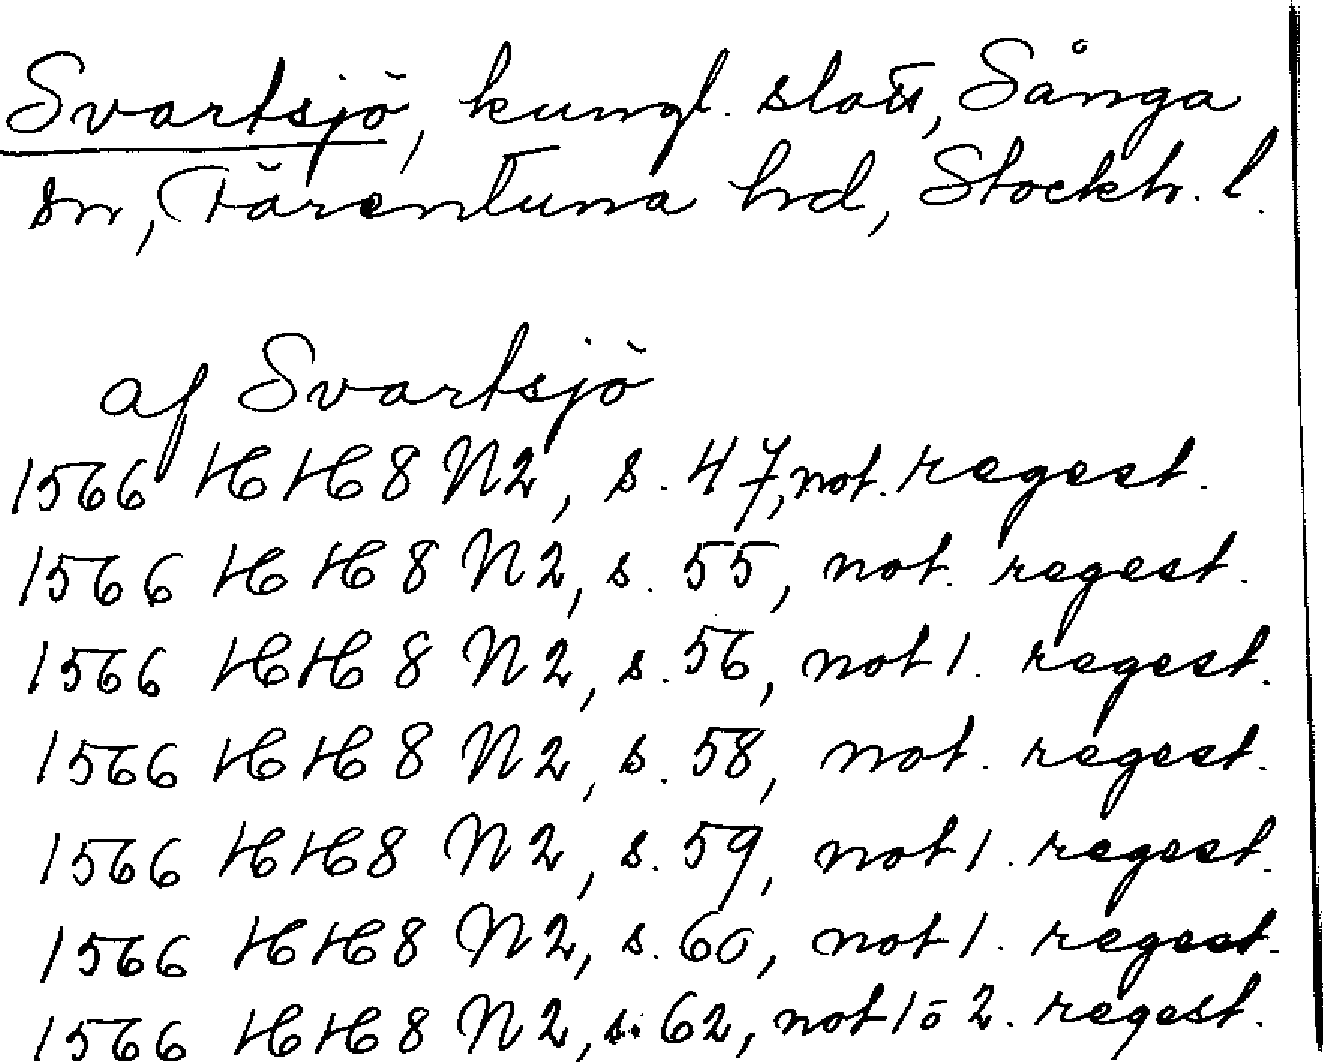 Svartsjö, kungl. slott, Sånga
sn, Färentuna hd, Stockh. l.
af Svartsjö
1566 HH 8 N2, s. 47, not. regest.
1566 HH 8 N2, s. 55, not. regest.
1566 HH 8 N2, s. 56, not 1. regest.
1566 HH 8 N2, s. 58, not. regest.
1566 HH 8 N2, s. 59, not 1. regest.
1566 HH 8 N2, s. 60, not 1. regest.
1566 HH 8 N2, s. 62, not 1 o 2. regest.